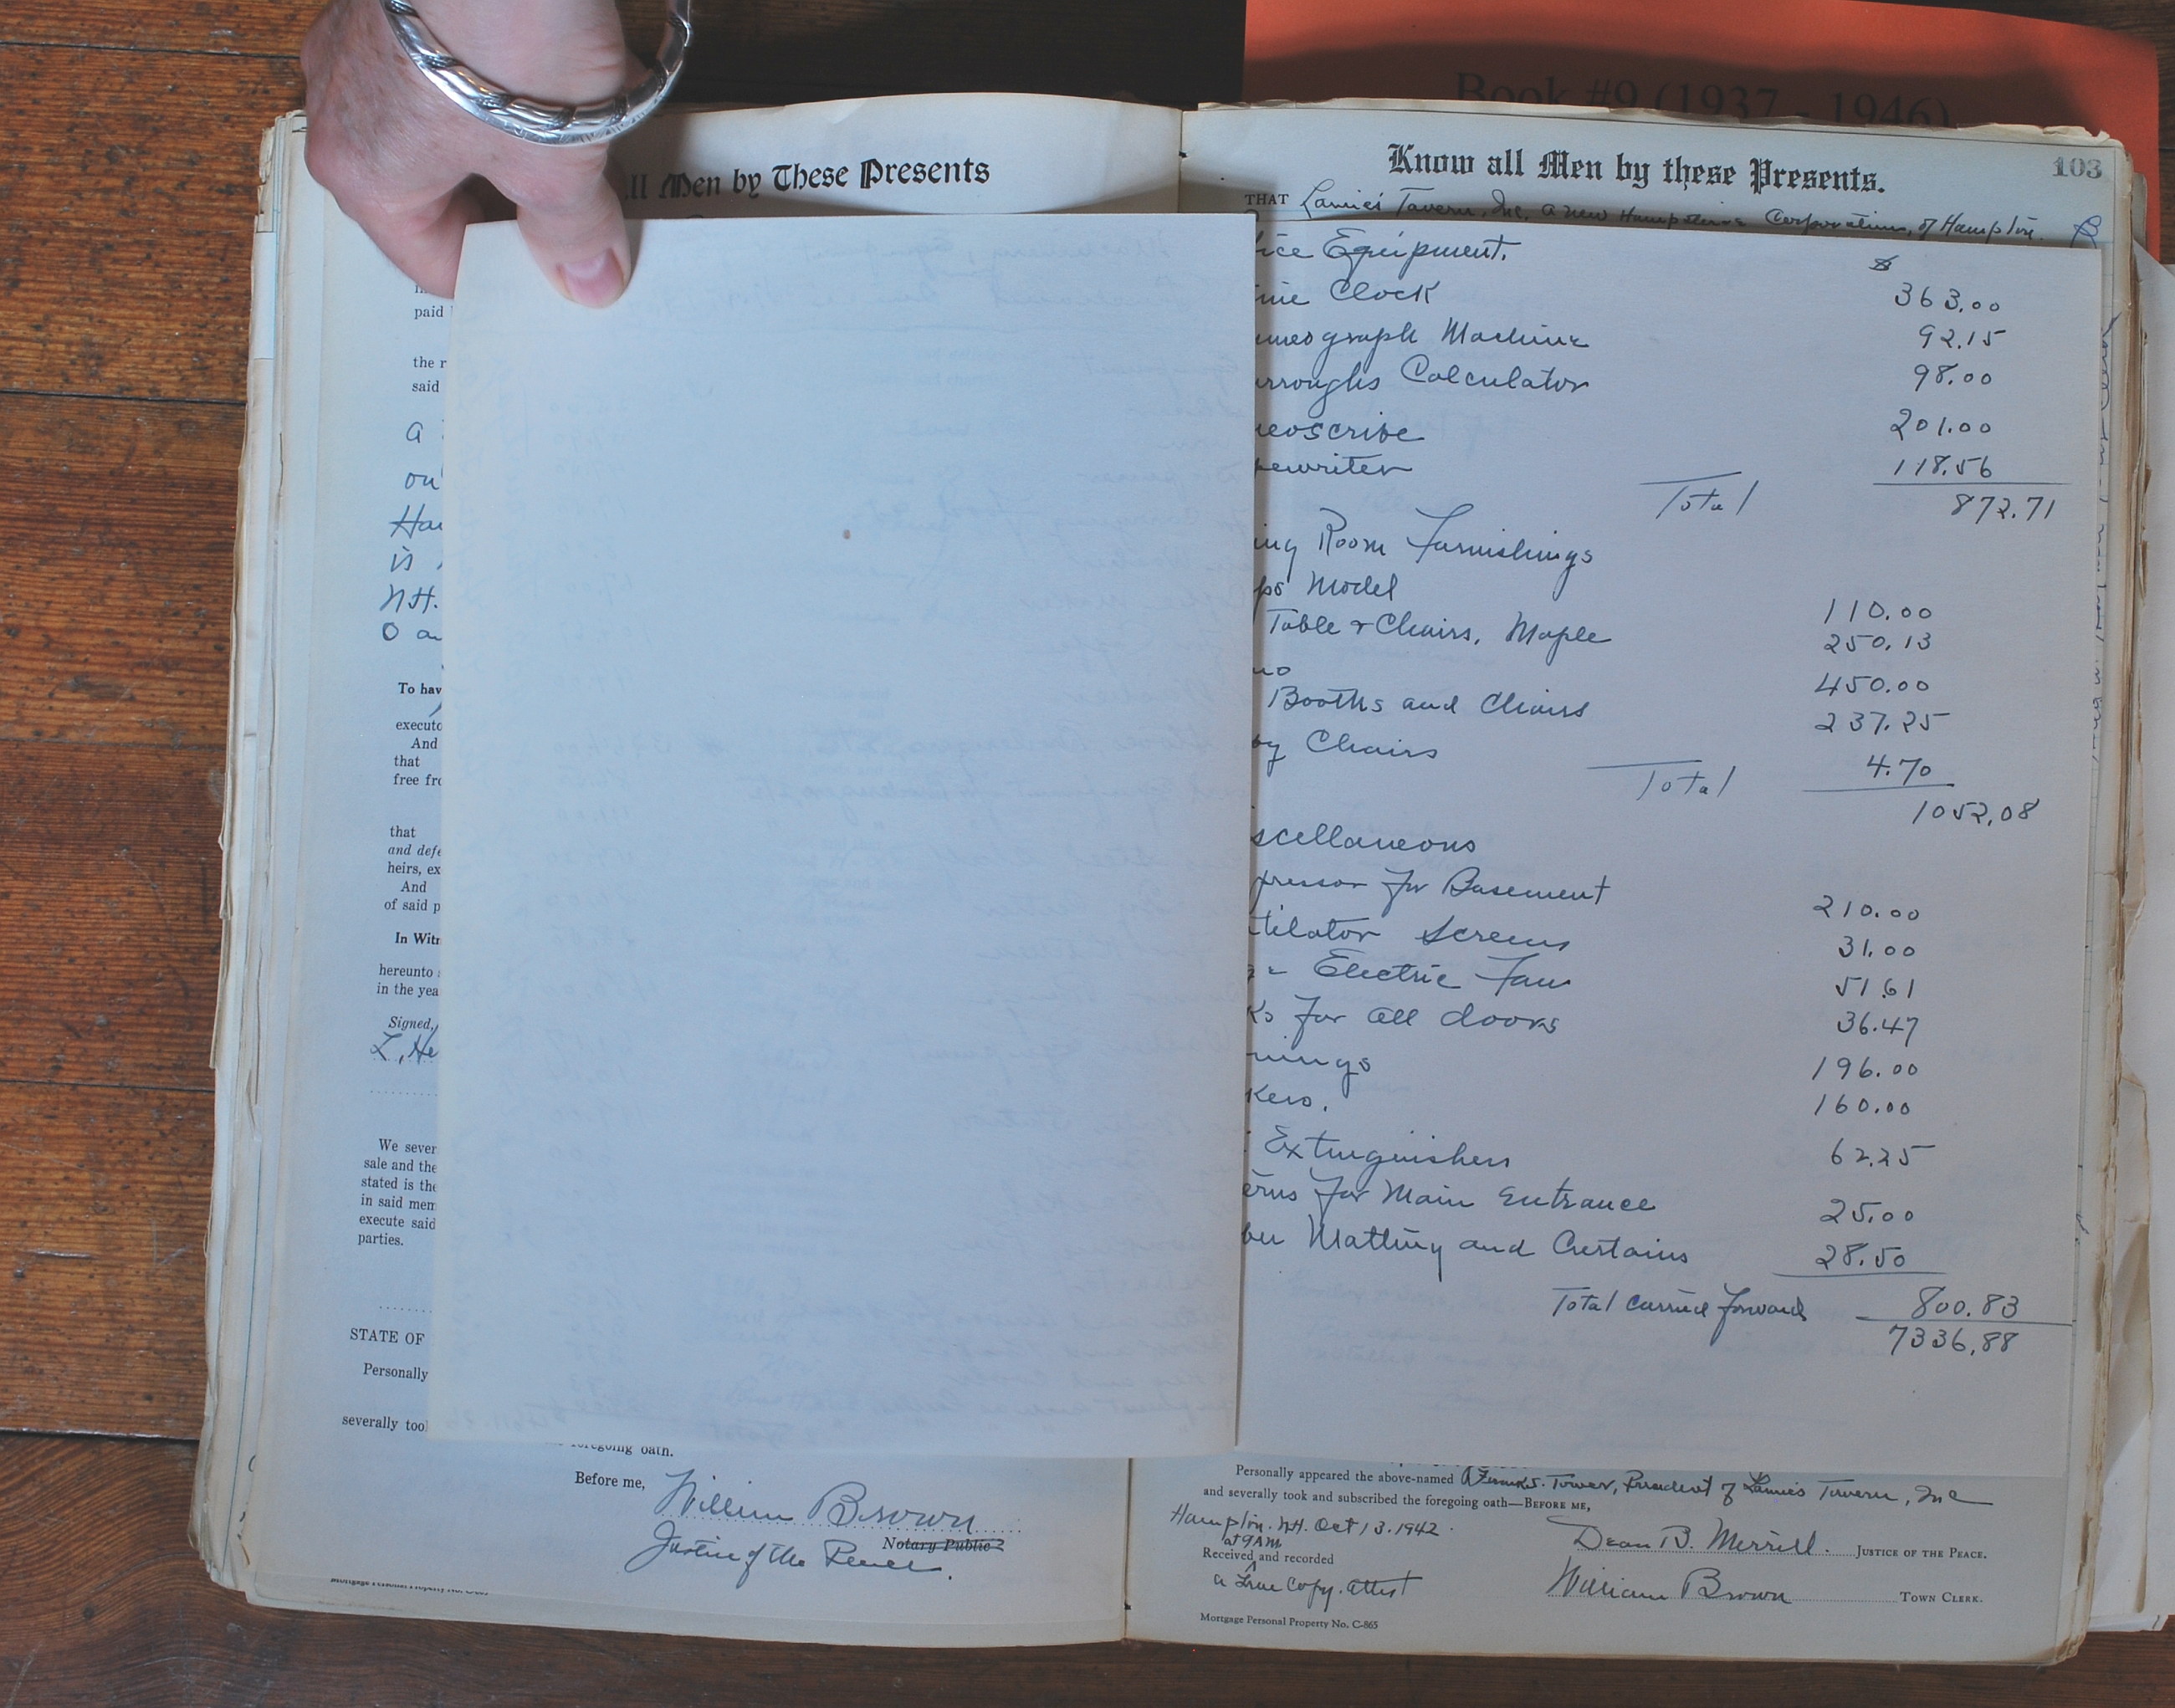 Book #9 (1937 - 1946)
ll Men by These Presents
paid
the r
said
a
on
Ha
is
N.H.
O a
To hav
executo
And
that
free fro
that
and defe
heirs, ex
And
of said p
In Witn
hereunto
in the yea
Signed,
L, He
We sever
sale and the
stated is the
in said mem
execute said
parties.
STATE OF
Personally
severally tool
foregoing oath.
Before me,
William Brown
Notary Public
Justice of the Peace.
Know all Men by these Presents.
103
THAT Lamie's Tavern, Inc, a New Hampshire Corporation, of Hampton.
ice Equipment.
$
me Clock 363.00
meograph Machine 92.15
rroughs Calculator 98.00
eoscribe 201.00
pewriter 118.56
Total 872.71
ing Room Furnishings
ps Model 110.00
Table & Chairs, Maple 250.13
no 450.00
Booths and Chairs 237.25
by Chairs 4.70
Total 1052.08
scellaneous
pressor for Basement 210.00
tilator Screens 31.00
Electric Fan 51.61
ks for all doors 36.47
nings 196.00
kers. 160.00
Extinguishers 62.25
erns for Main Entrance 25.00
ber Matting and Curtains 28.50
Total carried forward 800.83
7336.88
Personally appeared the above-named Frank S. Tower, President of Lamie's Tavern, Inc
and severally took and subscribed the foregoing oath—BEFORE ME,
Hampton. N.H. Oct 13. 1942.
at 9 AM
Dean B. Merrill. JUSTICE OF THE PEACE.
Received and recorded
a true copy. attest
William Brown TOWN CLERK.
Mortgage Personal Property No. C-865